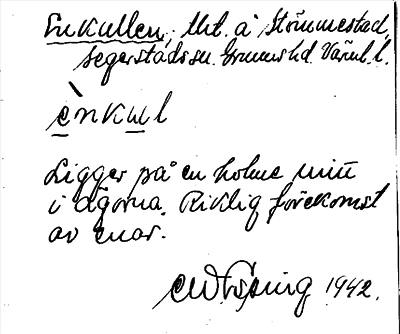 Enkullen, Ukt. å Stömmestad,
Segerstads sn. Grums hd. Värml. l.
ènkuul
Ligger på en holme mitt
i ägorna. Riklig förekomst
av enar.
1942.